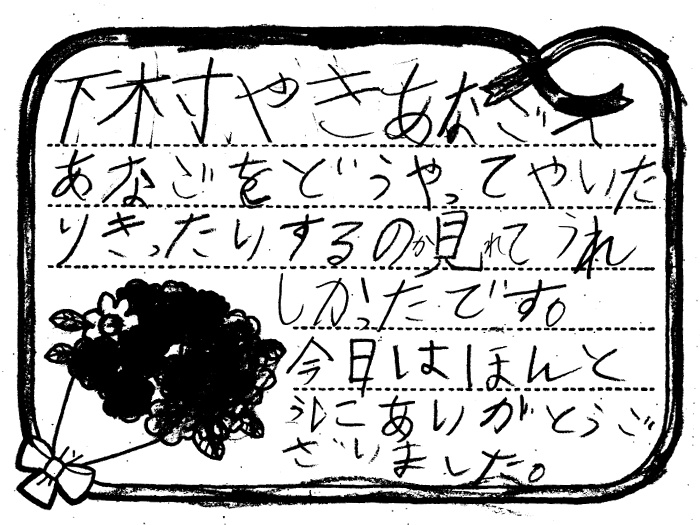 下村すやきあなごて
あなごをどうやってやいた
りきったりするのか見れてうれ
しかったです。
今日はほんと
うにありがとうご
ざいました。